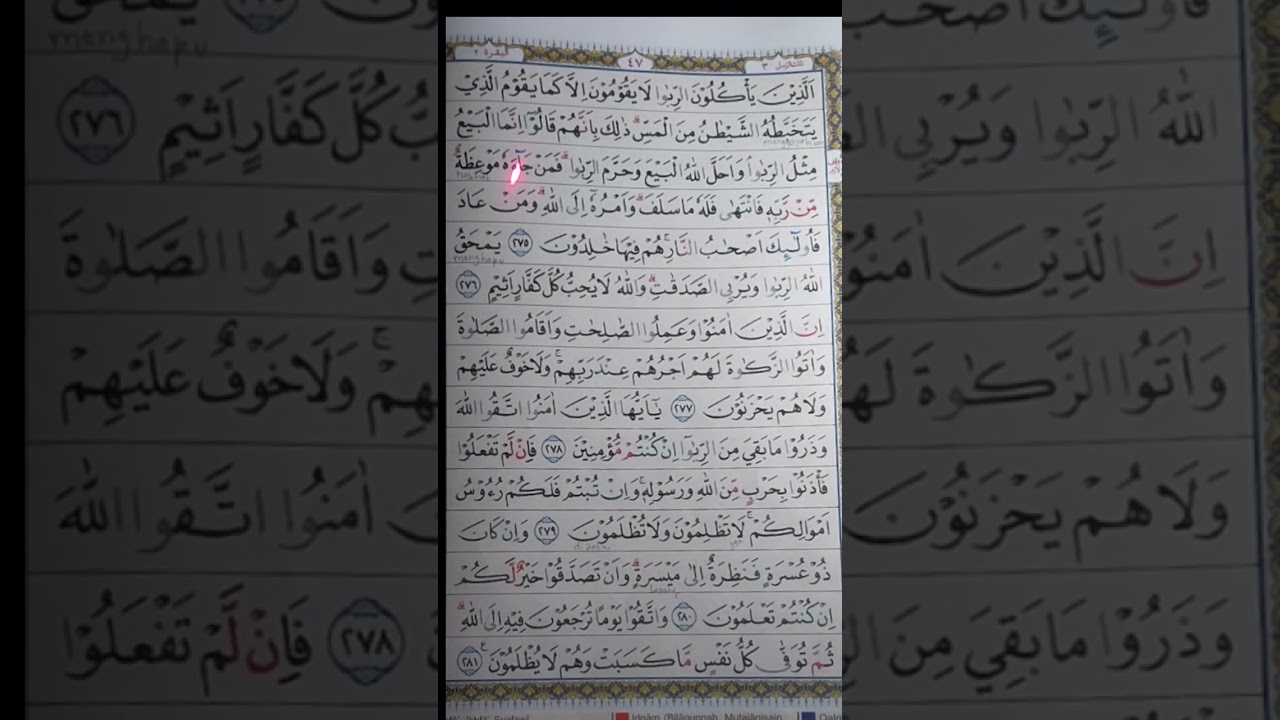 البقرة ٢
٤٧
تلك الرسل ٣
اَلَّذِيْنَ يَأْكُلُوْنَ الرِّبٰوا لَا يَقُوْمُوْنَ اِلَّا كَمَا يَقُوْمُ الَّذِيْ
يَتَخَبَّطُهُ الشَّيْطٰنُ مِنَ الْمَسِّۗ ذٰلِكَ بِاَنَّهُمْ قَالُوْٓا اِنَّمَا الْبَيْعُ
مِثْلُ الرِّبٰواۘ وَاَحَلَّ اللّٰهُ الْبَيْعَ وَحَرَّمَ الرِّبٰواۗ فَمَنْ جَاۤءَهٗ مَوْعِظَةٌ
مِّنْ رَّبِّهٖ فَانْتَهٰى فَلَهٗ مَا سَلَفَۗ وَاَمْرُهٗٓ اِلَى اللّٰهِۗ وَمَنْ عَادَ
فَاُولٰۤىِٕكَ اَصْحٰبُ النَّارِۚ هُمْ فِيْهَا خٰلِدُوْنَ ٢٧٥ يَمْحَقُ
menghapu
اللّٰهُ الرِّبٰوا وَيُرْبِى الصَّدَقٰتِۗ وَاللّٰهُ لَا يُحِبُّ كُلَّ كَفَّارٍ اَثِيْمٍ ٢٧٦
اِنَّ الَّذِيْنَ اٰمَنُوْا وَعَمِلُوا الصّٰلِحٰتِ وَاَقَامُوا الصَّلٰوةَ
وَاٰتَوُا الزَّكٰوةَ لَهُمْ اَجْرُهُمْ عِنْدَ رَبِّهِمْۚ وَلَا خَوْفٌ عَلَيْهِمْ
وَلَا هُمْ يَحْزَنُوْنَ ٢٧٧ يٰٓاَيُّهَا الَّذِيْنَ اٰمَنُوا اتَّقُوا اللّٰهَ
وَذَرُوْا مَا بَقِيَ مِنَ الرِّبٰوٓا اِنْ كُنْتُمْ مُّؤْمِنِيْنَ ٢٧٨ فَاِنْ لَّمْ تَفْعَلُوْا
فَأْذَنُوْا بِحَرْبٍ مِّنَ اللّٰهِ وَرَسُوْلِهٖۚ وَاِنْ تُبْتُمْ فَلَكُمْ رُءُوْسُ
اَمْوَالِكُمْۚ لَا تَظْلِمُوْنَ وَلَا تُظْلَمُوْنَ ٢٧٩ وَاِنْ كَانَ
ذُوْ عُسْرَةٍ فَنَظِرَةٌ اِلٰى مَيْسَرَةٍۗ وَاَنْ تَصَدَّقُوْا خَيْرٌ لَّكُمْ
اِنْ كُنْتُمْ تَعْلَمُوْنَ ٢٨٠ وَاتَّقُوْا يَوْمًا تُرْجَعُوْنَ فِيْهِ اِلَى اللّٰهِۗ
ثُمَّ تُوَفّٰى كُلُّ نَفْسٍ مَّا كَسَبَتْ وَهُمْ لَا يُظْلَمُوْنَ ٢٨١
Idgām (Bilāgunnah, Mutajānisain